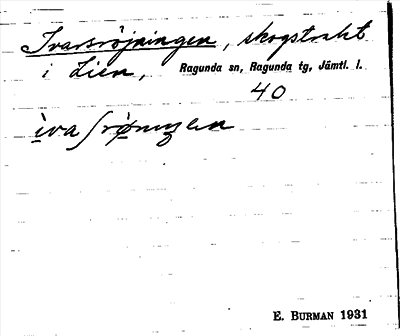 Ivarsröjningen, skogstrakt
i Lien, Ragunda sn, Ragunda tg, Jämtl. l.
40
E. BURMAN 1931